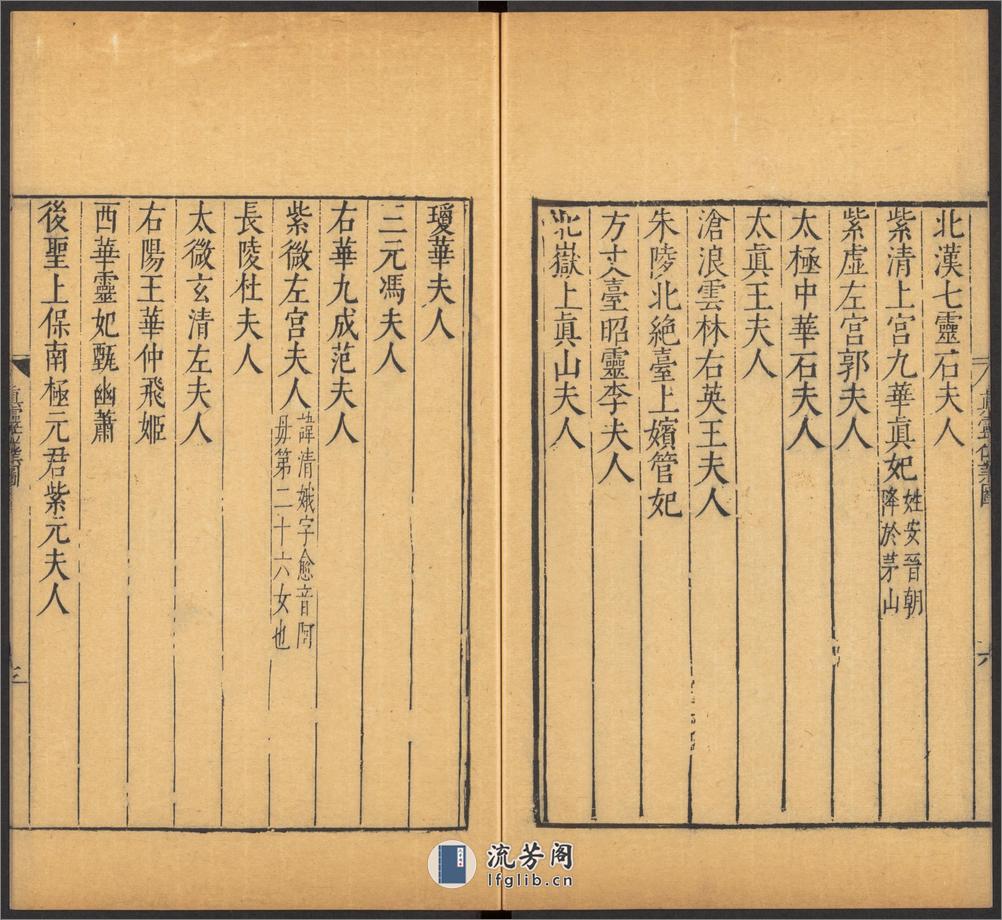 北漢七靈石夫人
紫清上宮九華眞妃姓安晉朝降於茅山
紫虛左宮郭夫人
太極中華石夫人
太眞王夫人
滄浪雲林右英王夫人
朱陵北絕臺上嬪管妃
方丈臺昭靈李夫人
北嶽上眞山夫人
瓊華夫人
三元馮夫人
右華九成范夫人
紫微左宮夫人諱清娥字愈音阿母第二十六女也
長陵杜夫人
太微玄清左夫人
右陽王華仲飛姬
西華靈妃甄幽蕭
後聖上保南極元君紫元夫人
流芳阁
lfglib.cn